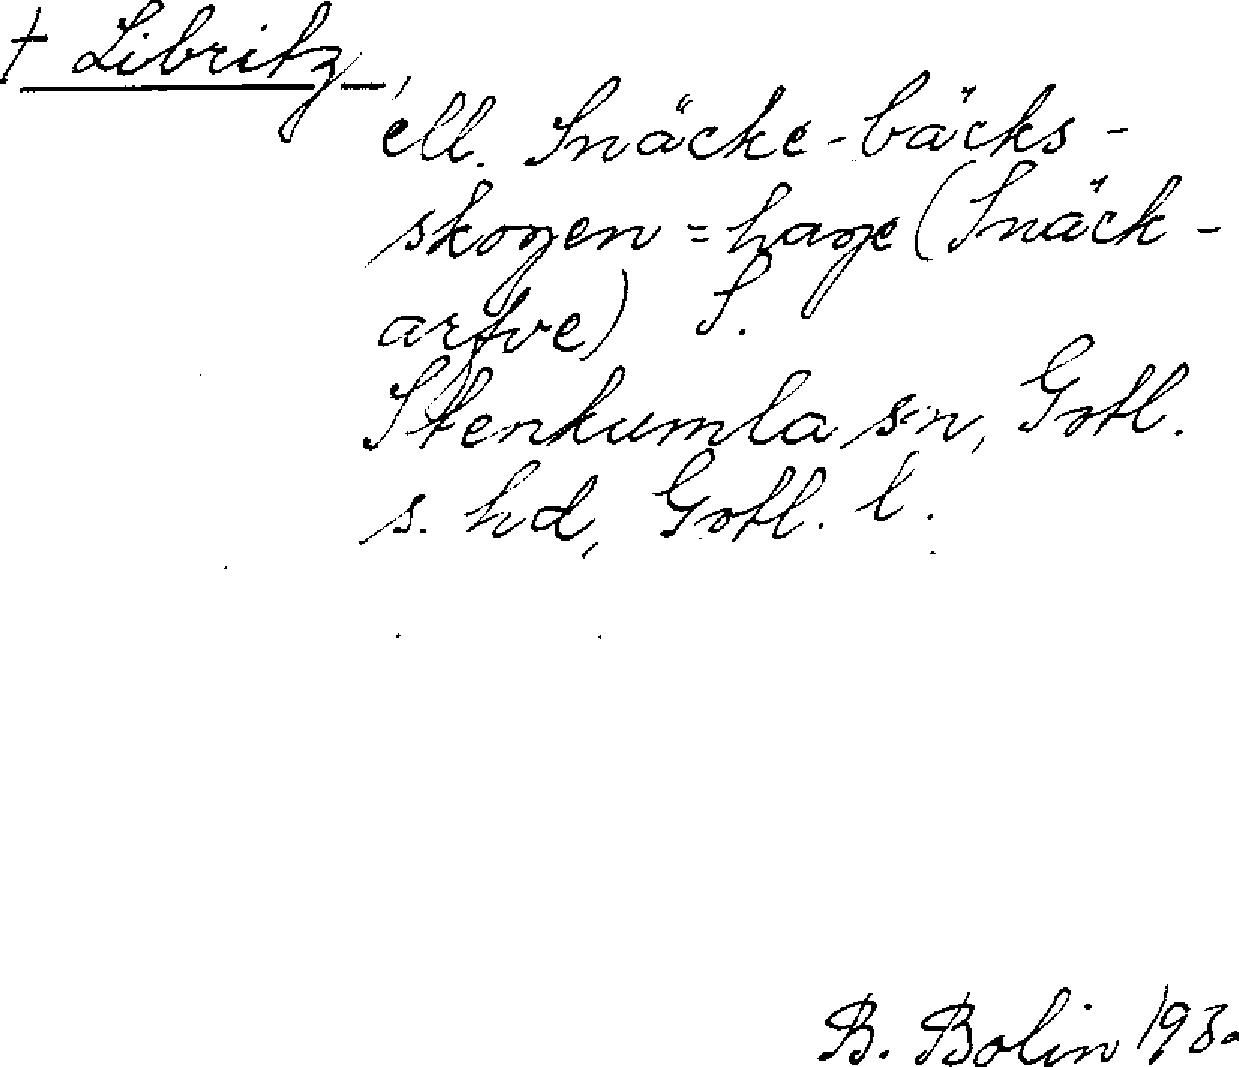 † Libritz,
ell. Snäcke-bäcks-
skogen = hage (Snäck-
arfve) S.
Stenkumla sn, Gotl.
s. hd, Gotl. l.
B. Bolin 193